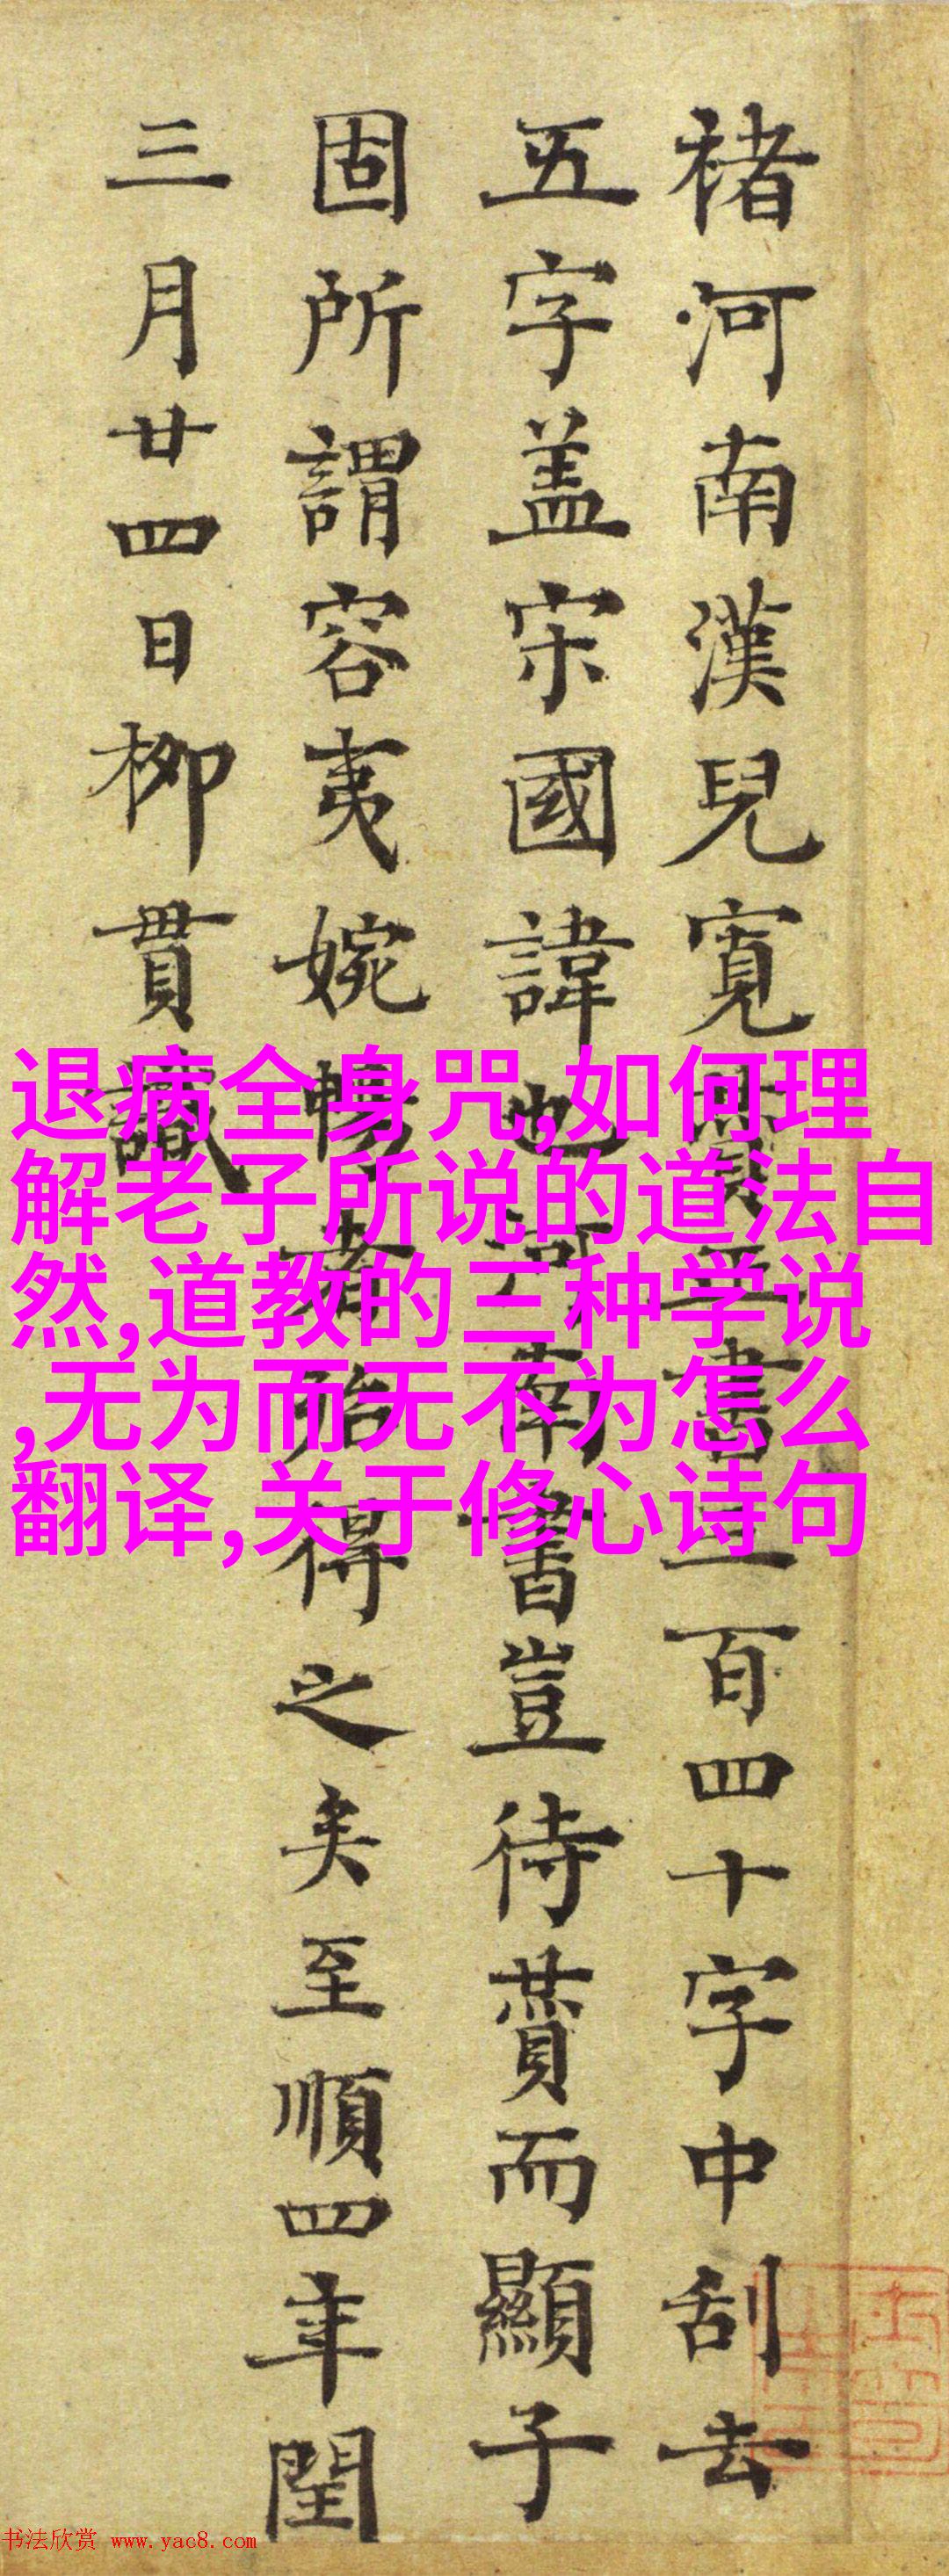 褚河南漢兒寬書三百四十字中刮去
五字盖宋國諱也河南書豈待賛而顯子
固所謂容夷婉暢者始得之矣至順四年閏
三月廿四日柳貫識
退病全身咒,如何理
解老子所说的道法自
然,道教的三种学说
,无为而无不为怎么
翻译,关于修心诗句
书法欣赏 www.yac8.com